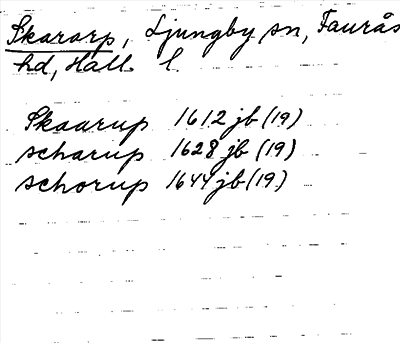 Skararp, Ljungby sn, Faurås
hd, Hall. l.
Skaarup 1612 jb (19)
scharup 1628 jb (19)
schorup 1644 jb (19)